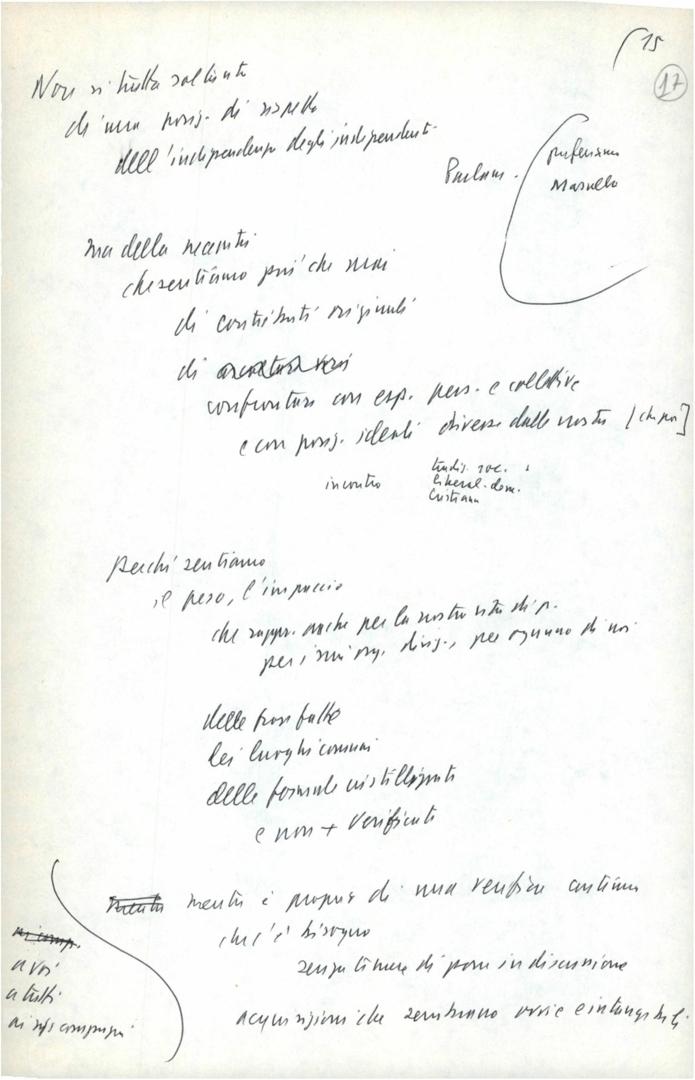 15
17
Non si tratta soltanto
di una posiz. di rispetto
dell'indipendenza degli indipendenti
Parlam.
professione
Marsullo
ma della necessità
che sentiamo più che mai
di contributi originali
di
confrontarsi con esp. pers. e collettive
e con posiz. ideali diverse dalle nostre [che poi]
incontro
tradiz. soc.
liberal-dem.
cristiana
perché sentiamo
il peso, l'impaccio
che rappr. anche per la nostra vita di p.
per i suoi org. dirig., per ognuno di noi
delle frasi fatte
dei luoghi comuni
delle formule cristallizzate
e non + verificate
mentre
mentre è proprio di una verifica continua
che c'è bisogno
senza timore di porre in discussione
acquisizioni che sembrano ovvie e intangibili
ai comp.
a voi
a tutti
ai compagni